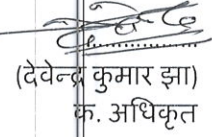 (देवेन्द्र कुमार झा)
क. अधिकृत